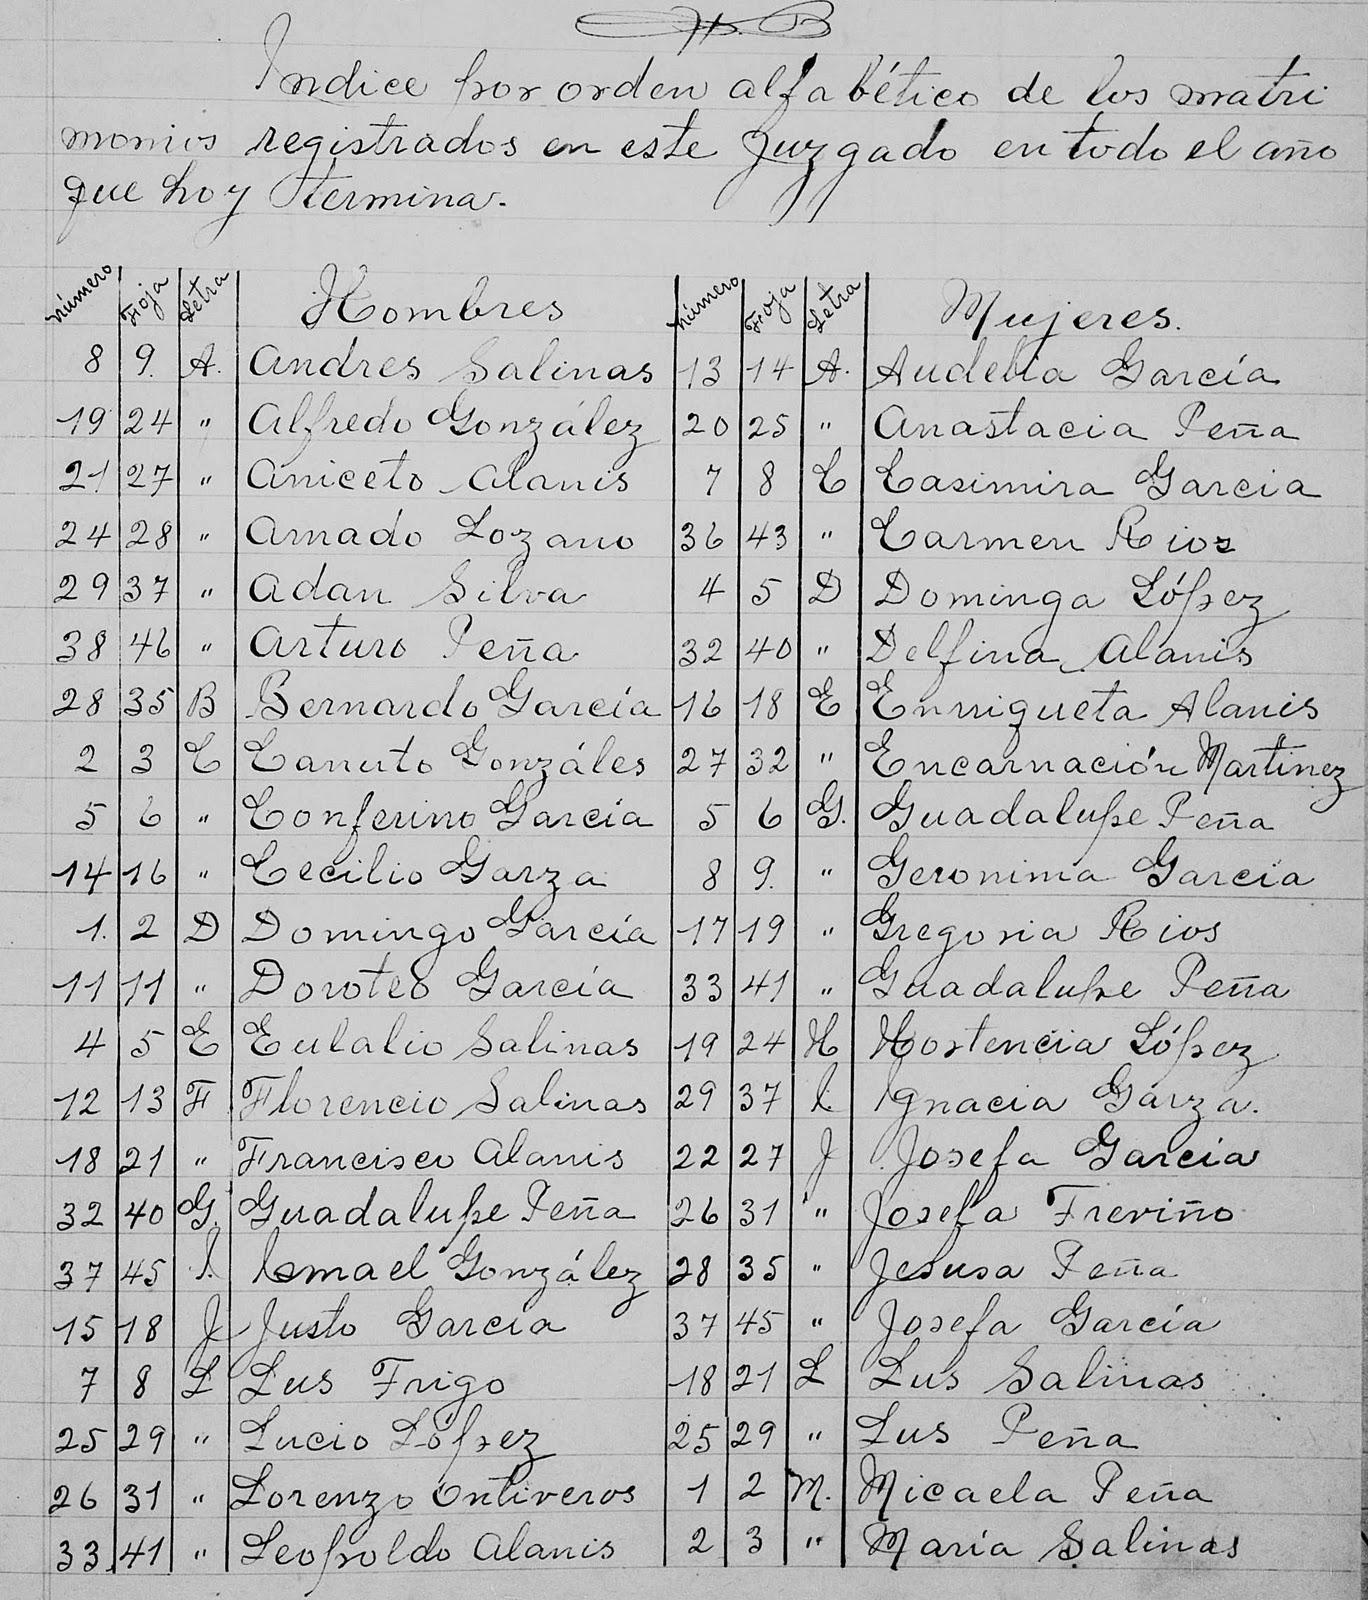 Indice por orden alfabético de los matri
monios registrados en este Juzgado en todo el año
que hoy termina.
Número Foja Letra Hombres Número Foja Letra Mujeres.
8 9. A. Andres Salinas 13 14 A. Audelia García
19 24 " Alfredo González 20 25 " Anastacia Peña
21 27 " Aniceto Alanis 7 8 C Casimira Garcia
24 28 " Amado Lozano 36 43 " Carmen Rios
29 37 " Adan Silva 4 5 D Dominga López
38 46 " Arturo Peña 32 40 " Delfina Alanis
28 35 B Bernardo García 16 18 E Enrriqueta Alanis
2 3 C Canuto Gonzáles 27 32 " Encarnación Martinez
5 6 " Conferino García 5 6 G. Guadalupe Peña
14 16 " Cecilio Garza 8 9. " Geronima Garcia
1. 2 D Domingo García 17 19 " Gregoria Rios
11 11 " Doroteo García 33 41 " Guadalupe Peña
4 5 E Eulalio Salinas 19 24 H Hortencia López
12 13 F Florencio Salinas 29 37 I. Ignacia Garza.
18 21 " Francisco Alanis 22 27 J Josefa Garcia
32 40 G. Guadalupe Peña 26 31 " Josefa Treviño
37 45 I. Ismael González 28 35 " Jesusa Peña
15 18 J Justo Garcia 37 45 " Josefa García
7 8 L Lus Trigo 18 21 L Lus Salinas
25 29 " Lucio López 25 29 " Lus Peña
26 31 " Lorenzo Ontiveros 1 2 M. Micaela Peña
33. 41 " Leopoldo Alanis 2 3 " María Salinas